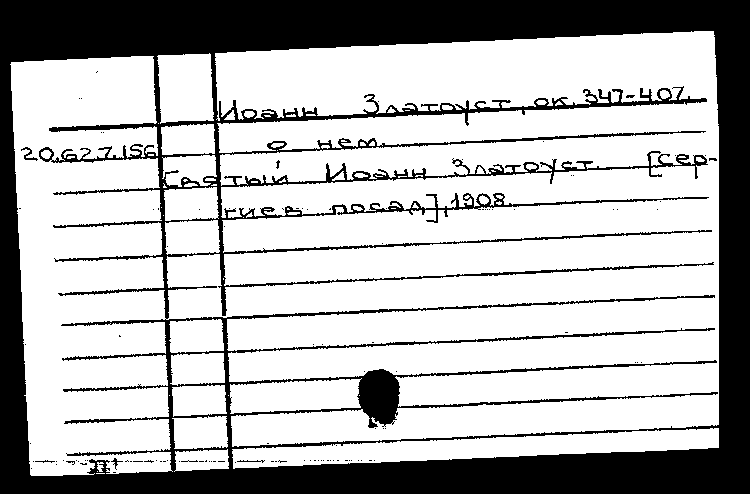 Иоанн Златоуст, ок. 347-407.
20.627.156 о нем.
Святый Иоанн Златоуст. [Сер-
гиев посад], 1908.